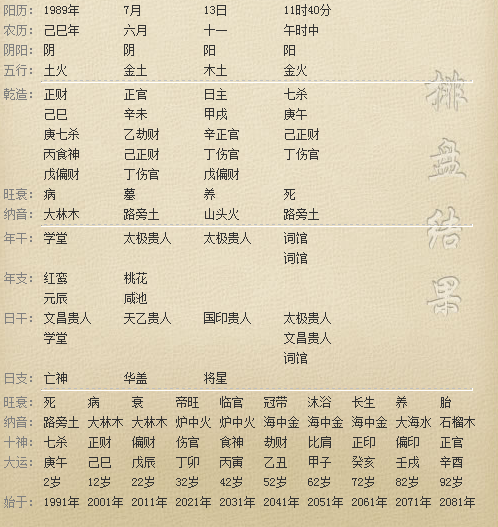 阳历: 1989年 7月 13日 11时40分
农历: 己巳年 六月 十一 午时中
阴阳: 阴 阴 阳 阳
五行: 土火 金土 木土 金火
乾造: 正财 正官 日主 七杀
己巳 辛未 甲戌 庚午
庚七杀 乙劫财 辛正官 己正财
丙食神 己正财 丁伤官 丁伤官
戊偏财 丁伤官 戊偏财
旺衰: 病 墓 养 死
纳音: 大林木 路旁土 山头火 路旁土
年干: 学堂 太极贵人 太极贵人 词馆
词馆
年支: 红鸾 桃花
元辰 咸池
日干: 文昌贵人 天乙贵人 国印贵人 太极贵人
学堂 文昌贵人
词馆
日支: 亡神 华盖 将星
旺衰: 死 病 衰 帝旺 临官 冠带 沐浴 长生 养 胎
纳音: 路旁土 大林木 大林木 炉中火 炉中火 海中金 海中金 海中金 大海水 石榴木
十神: 七杀 正财 偏财 伤官 食神 劫财 比肩 正印 偏印 正官
大运: 庚午 己巳 戊辰 丁卯 丙寅 乙丑 甲子 癸亥 壬戌 辛酉
2岁 12岁 22岁 32岁 42岁 52岁 62岁 72岁 82岁 92岁
始于: 1991年 2001年 2011年 2021年 2031年 2041年 2051年 2061年 2071年 2081年
排盘结果